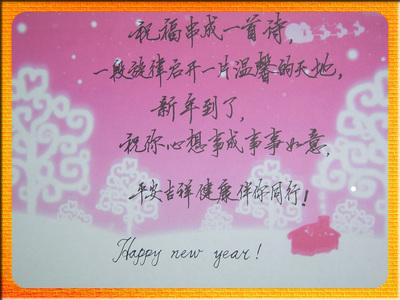 祝福串成一首诗，
一段旋律启开一片温馨的天地，
新年到了，
祝你心想事成事事如意，
平安吉祥健康伴你同行！
Happy new year!